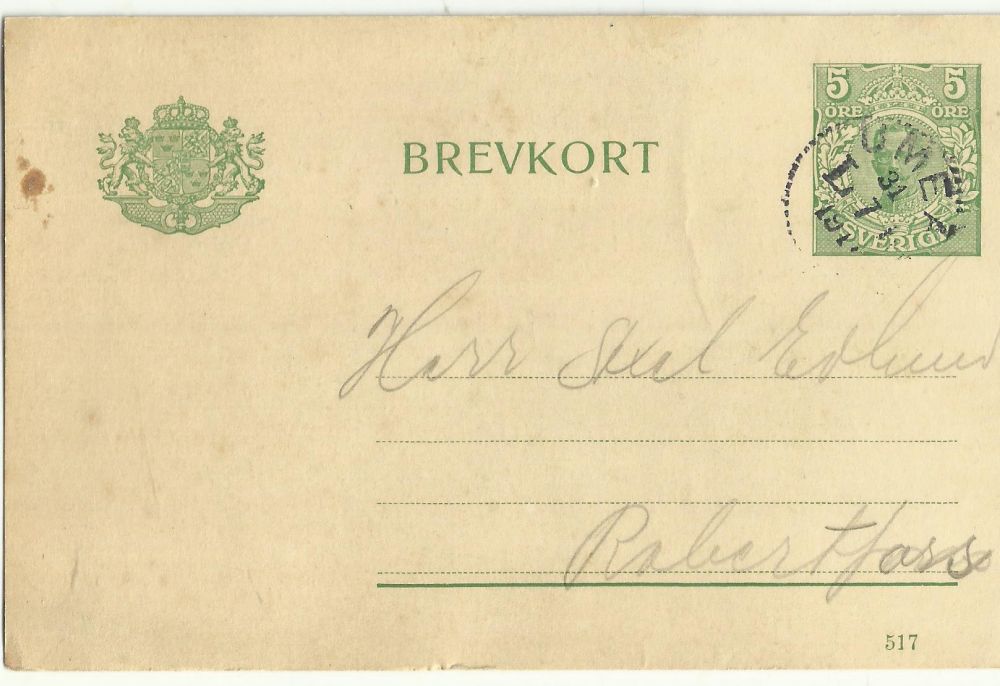 5 5
ÖRE ÖRE
BREVKORT
UMEÅ
31
7
SVERIGE
Herr Axel Edlund
Robertsfors
517